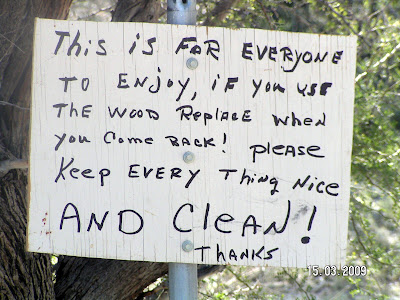 This is FOR EVERYONE
TO ENJOY, iF you use
The wood RePlace when
you Come BACK! please
Keep EVERY Thing Nice
AND Clean!
THANKS
15.03.2009